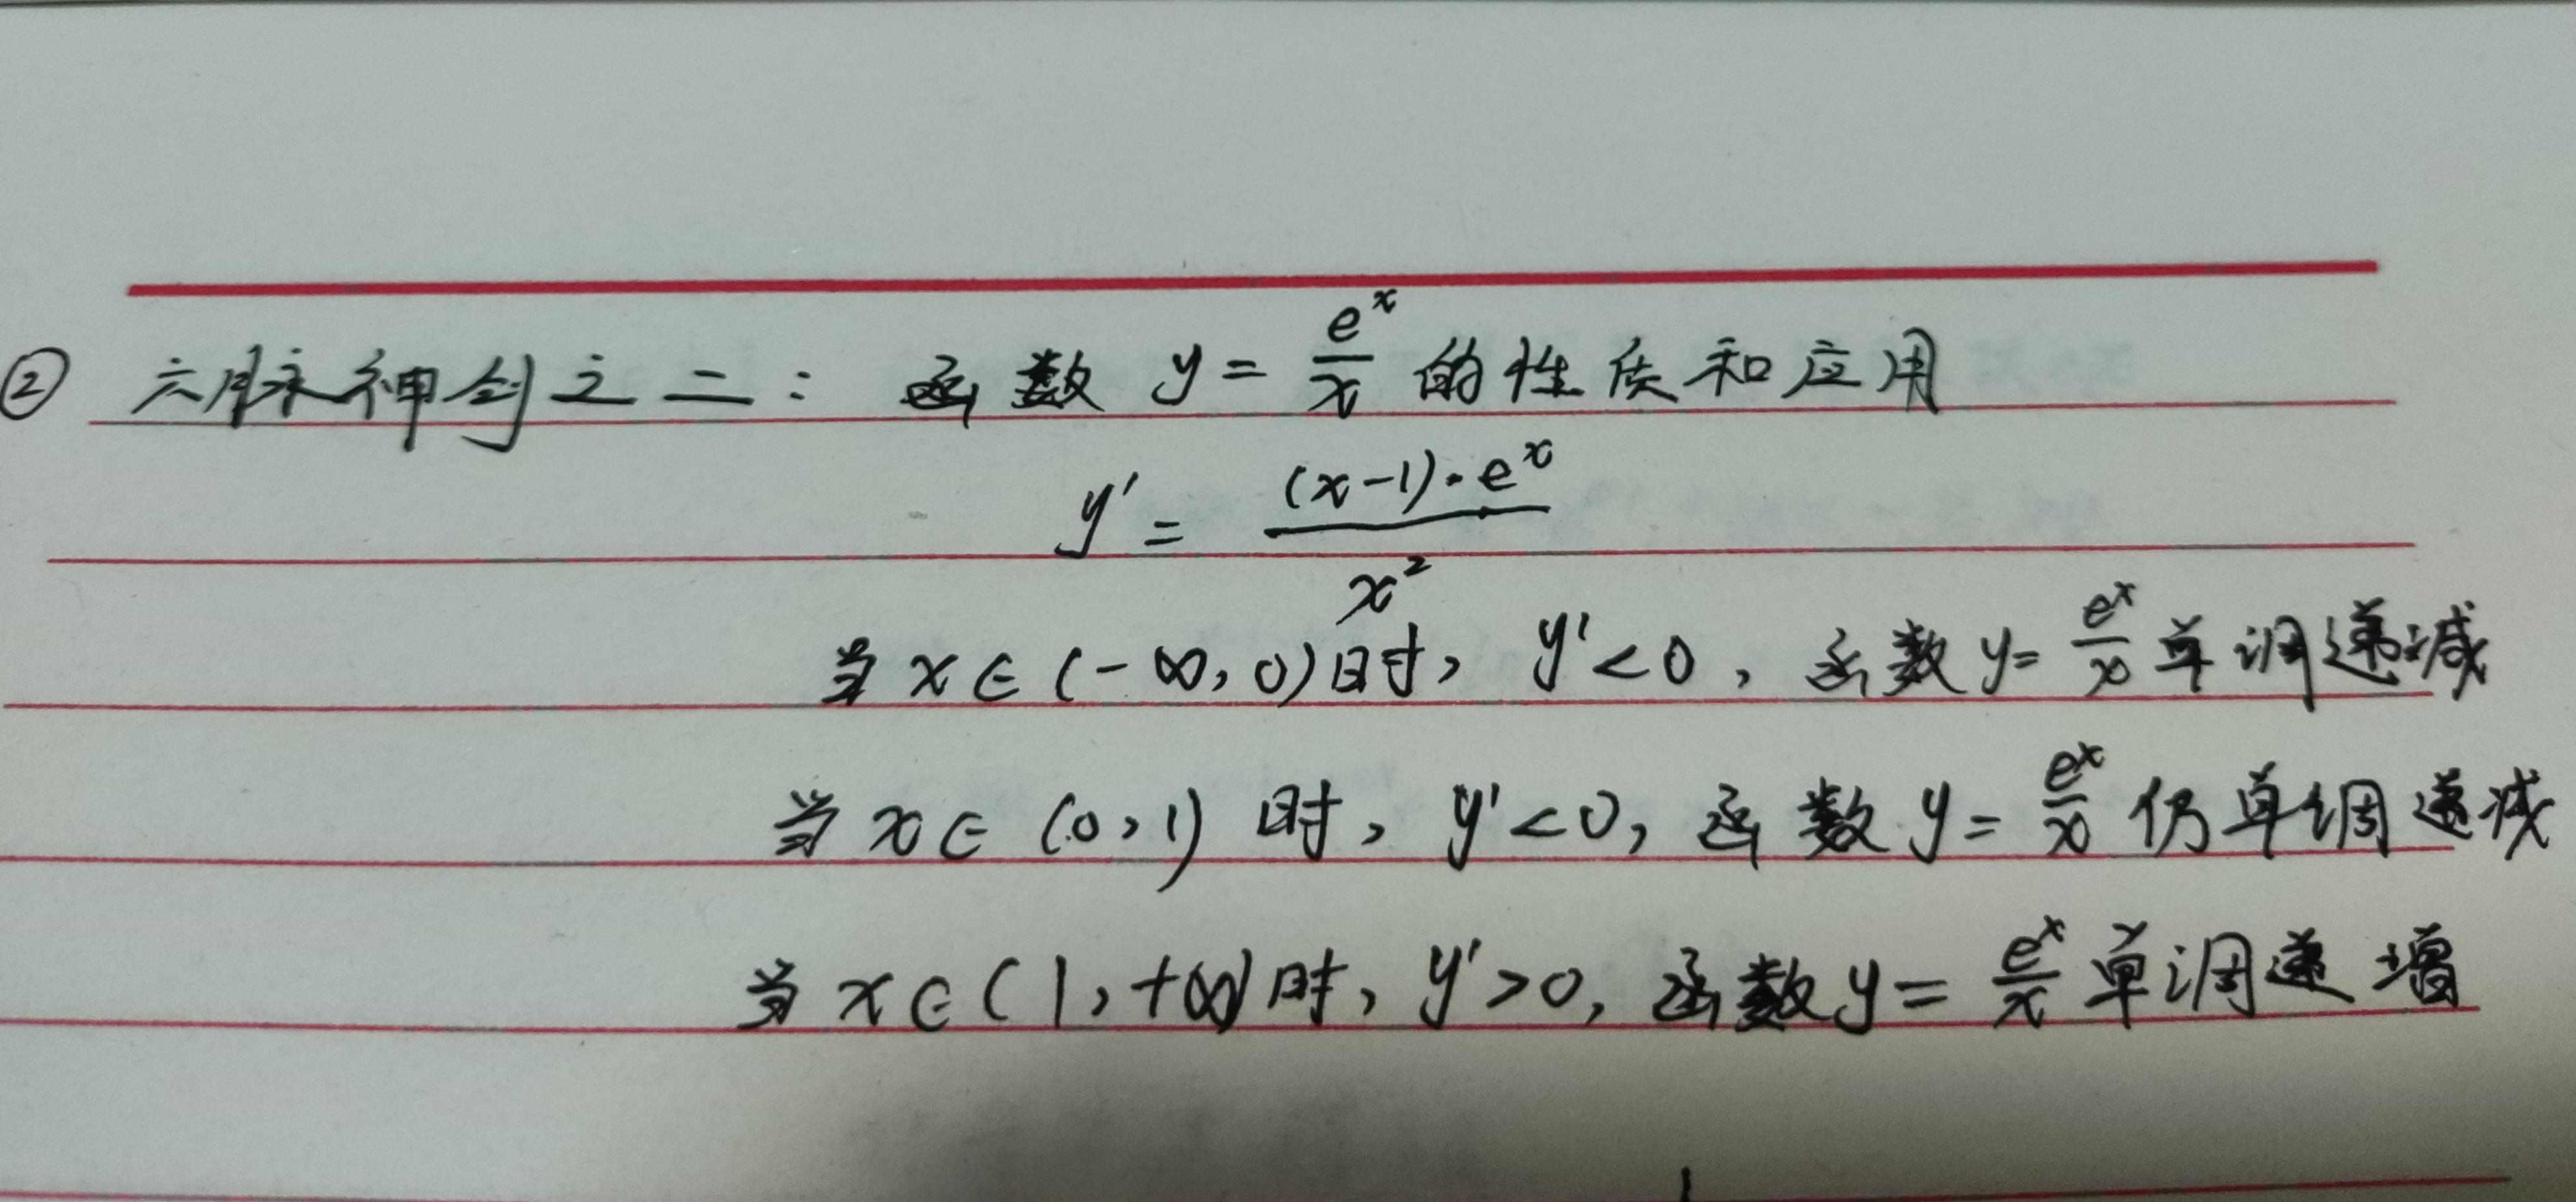 ② 六脉神剑之二：函数 y = e^x/x 的性质和应用
y' = (x-1)·e^x / x^2
当 x∈(-∞,0)时，y'<0，函数y=e^x/x单调递减
当 x∈(0,1) 时，y'<0，函数y=e^x/x仍单调递减
当 x∈(1,+∞)时，y'>0，函数y=e^x/x单调递增